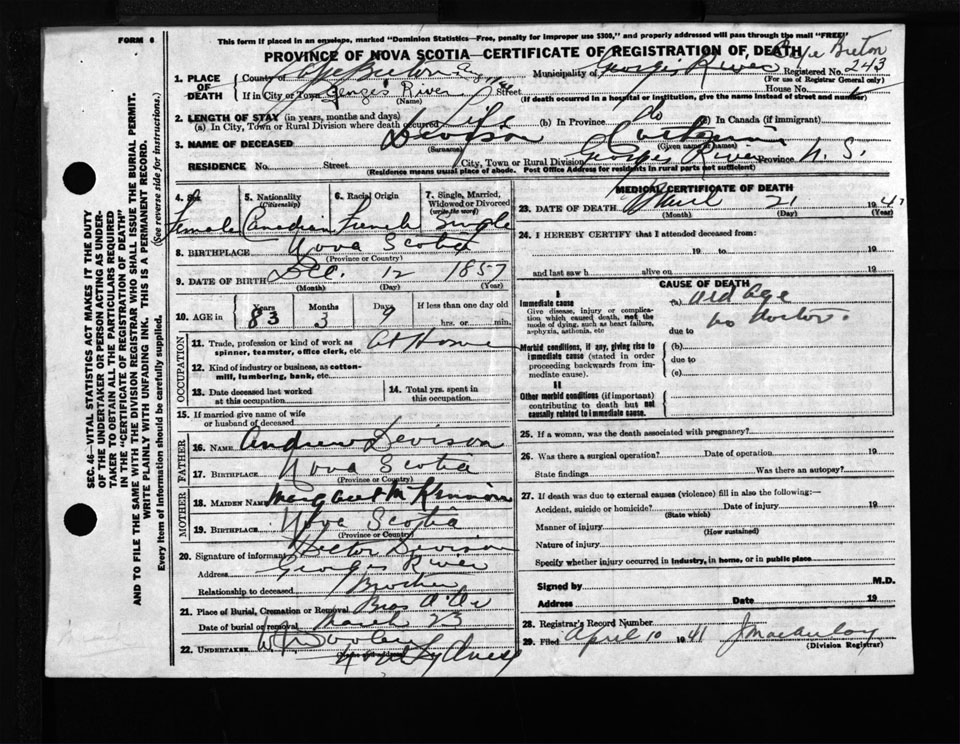 FORM 6
This form if placed in an envelope, marked "Dominion Statistics—Free, penalty for improper use $300," and properly addressed will pass through the mail "FREE"
PROVINCE OF NOVA SCOTIA—CERTIFICATE OF REGISTRATION OF DEATH
Cape Breton
1. PLACE OF DEATH
County of Cape Breton
Municipality of Georges River
Registered No. 243
(For use of Registrar General only)
If in City or Town Georges River Street
(Name)
House No.
(If death occurred in a hospital or institution, give the name instead of street and number)
2. LENGTH OF STAY (in years, months and days)
(a) In City, Town or Rural Division where death occurred Life (b) In Province do (c) In Canada (if immigrant)
3. NAME OF DECEASED Devison
(Surname) (Given name or names)
RESIDENCE No. Street City, Town or Rural Division Georges River Province N. S.
(Residence means usual place of abode. Post Office Address for residents in rural parts not sufficient)
4. Sex
5. Nationality
(Citizenship)
6. Racial Origin
7. Single, Married, Widowed or Divorced
(write the word)
Female Canadian French Single
8. BIRTHPLACE Nova Scotia
(Province or Country)
9. DATE OF BIRTH Dec. 12 1857
(Month) (Day) (Year)
10. AGE in
Years Months Days If less than one day old
83 3 9 hrs. or min.
OCCUPATION
11. Trade, profession or kind of work as spinner, teamster, office clerk, etc. At Home
12. Kind of industry or business, as cotton-mill, lumbering, bank, etc.
13. Date deceased last worked at this occupation
14. Total yrs. spent in this occupation
15. If married give name of wife or husband of deceased
FATHER
16. NAME Andrew Devison
17. BIRTHPLACE Nova Scotia
(Province or Country)
MOTHER
18. MAIDEN NAME Margaret McKinnon
19. BIRTHPLACE Nova Scotia
(Province or Country)
20. Signature of informant Hector Devison
Address Georges River
Relationship to deceased Brother
21. Place of Burial, Cremation or Removal Bras d'Or
Date of burial or removal March 23
22. UNDERTAKER
North Sydney
MEDICAL CERTIFICATE OF DEATH
23. DATE OF DEATH 21 1941
(Month) (Day) (Year)
24. I HEREBY CERTIFY that I attended deceased from:
19 to 19
and last saw h alive on 19
CAUSE OF DEATH
I
Immediate cause
Give disease, injury or complication which caused death, not the mode of dying, such as heart failure, asphyxia, asthenia, etc
(a) old Age
no doctor.
due to
Morbid conditions, if any, giving rise to immediate cause (stated in order proceeding backwards from immediate cause).
(b)
due to
(c)
II
Other morbid conditions (if important) contributing to death but not causally related to immediate cause.
25. If a woman, was the death associated with pregnancy?
26. Was there a surgical operation? Date of operation 19
State findings Was there an autopsy?
27. If death was due to external causes (violence) fill in also the following:—
Accident, suicide or homicide? Date of injury 19
(State which)
Manner of injury
(How sustained)
Nature of injury
Specify whether injury occurred in industry, in home, or in public place
Signed by M.D.
Address Date 19
28. Registrar's Record Number
29. Filed April 10 1941 J Macaulay
(Division Registrar)
SEC. 46—VITAL STATISTICS ACT MAKES IT THE DUTY
OF THE UNDERTAKER OR PERSON ACTING AS UNDER-
TAKER TO OBTAIN ALL THE PARTICULARS REQUIRED
IN THE "CERTIFICATE OF REGISTRATION OF DEATH"
AND TO FILE THE SAME WITH THE DIVISION REGISTRAR WHO SHALL ISSUE THE BURIAL PERMIT.
WRITE PLAINLY WITH UNFADING INK. THIS IS A PERMANENT RECORD.
Every item of information should be carefully supplied. (See reverse side for instructions).